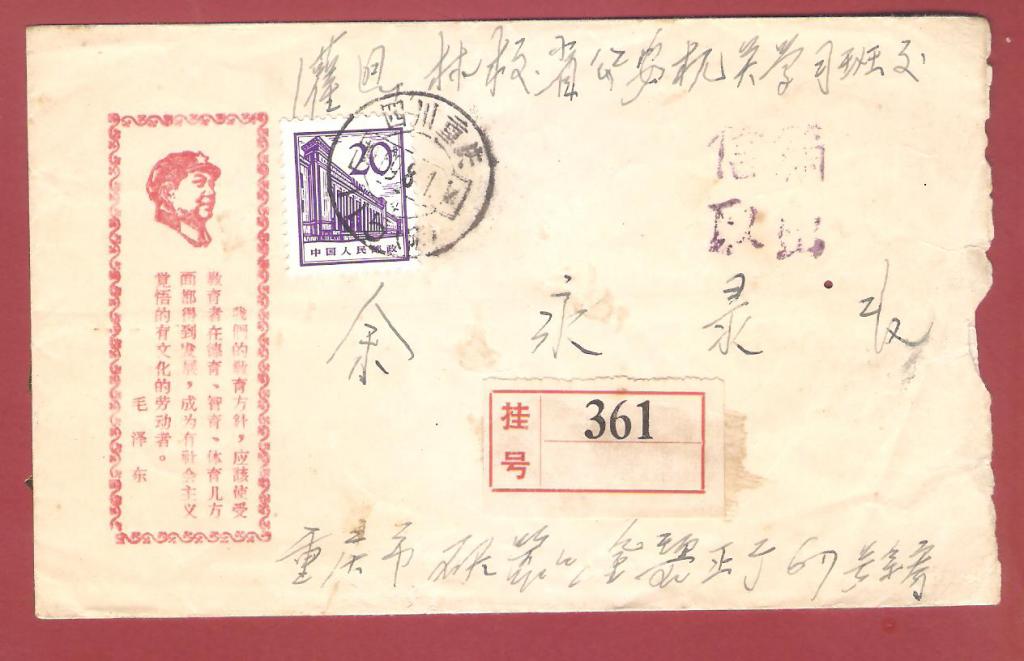 灌县 林校 省公安机关学习班交
四川重庆
20
中国人民邮政
信箱
取出
余永录收
我们的教育方针,应该使受
教育者在德育、智育、体育几方
面都得到发展,成为有社会主义
觉悟的有文化的劳动者。
毛泽东
挂号
361
重庆市
67号